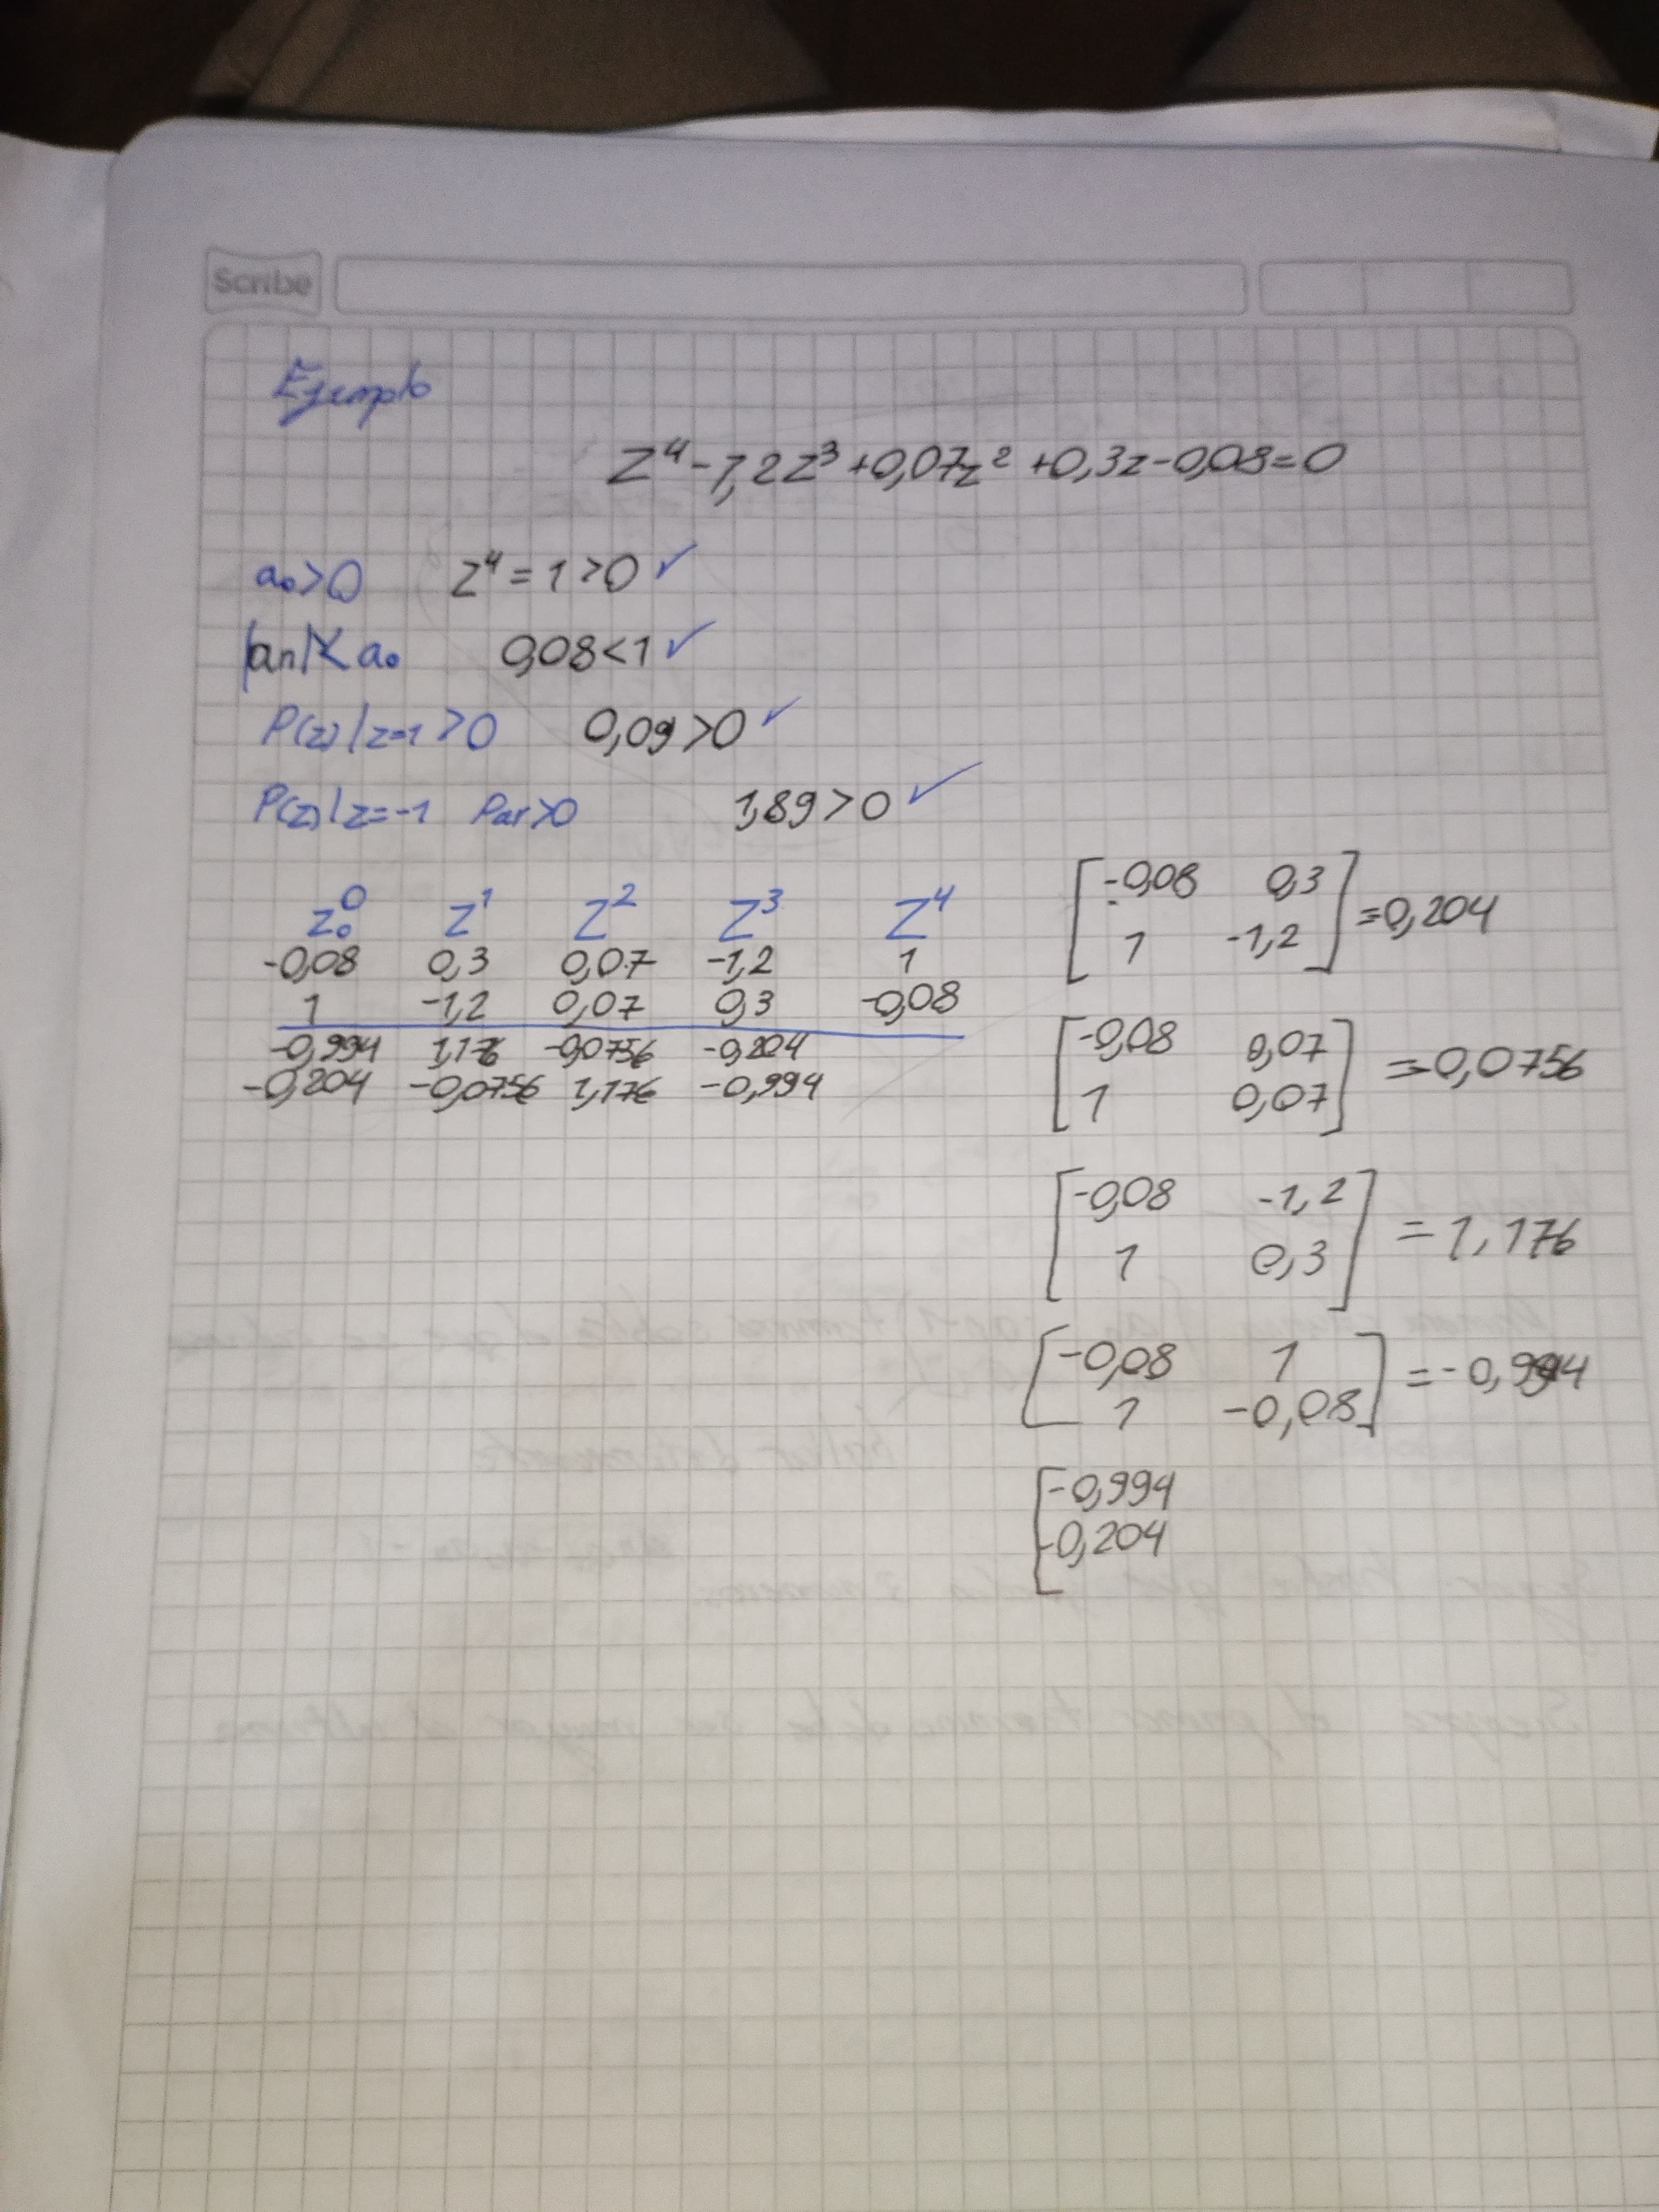 Scribe
Ejemplo
Z⁴-1,2Z³+0,07z²+0,3z-0,08=0
a₀>0 Z⁴=1>0 ✓
|an|<a₀ 0,08<1 ✓
P(z)|z=1>0 0,09>0 ✓
P(z)|z=-1 Par>0 1,89>0 ✓
Z⁰ Z¹ Z² Z³ Z⁴
-0,08 0,3 0,07 -1,2 1
1 -1,2 0,07 0,3 -0,08
-0,994 1,176 -0,0756 -0,204
-0,204 -0,0756 1,176 -0,994
[-0,08 0,3
1 -1,2] =-0,204
[-0,08 0,07
1 0,07] =-0,0756
[-0,08 -1,2
1 0,3] =1,176
[-0,08 1
1 -0,08] =-0,994
[-0,994
-0,204